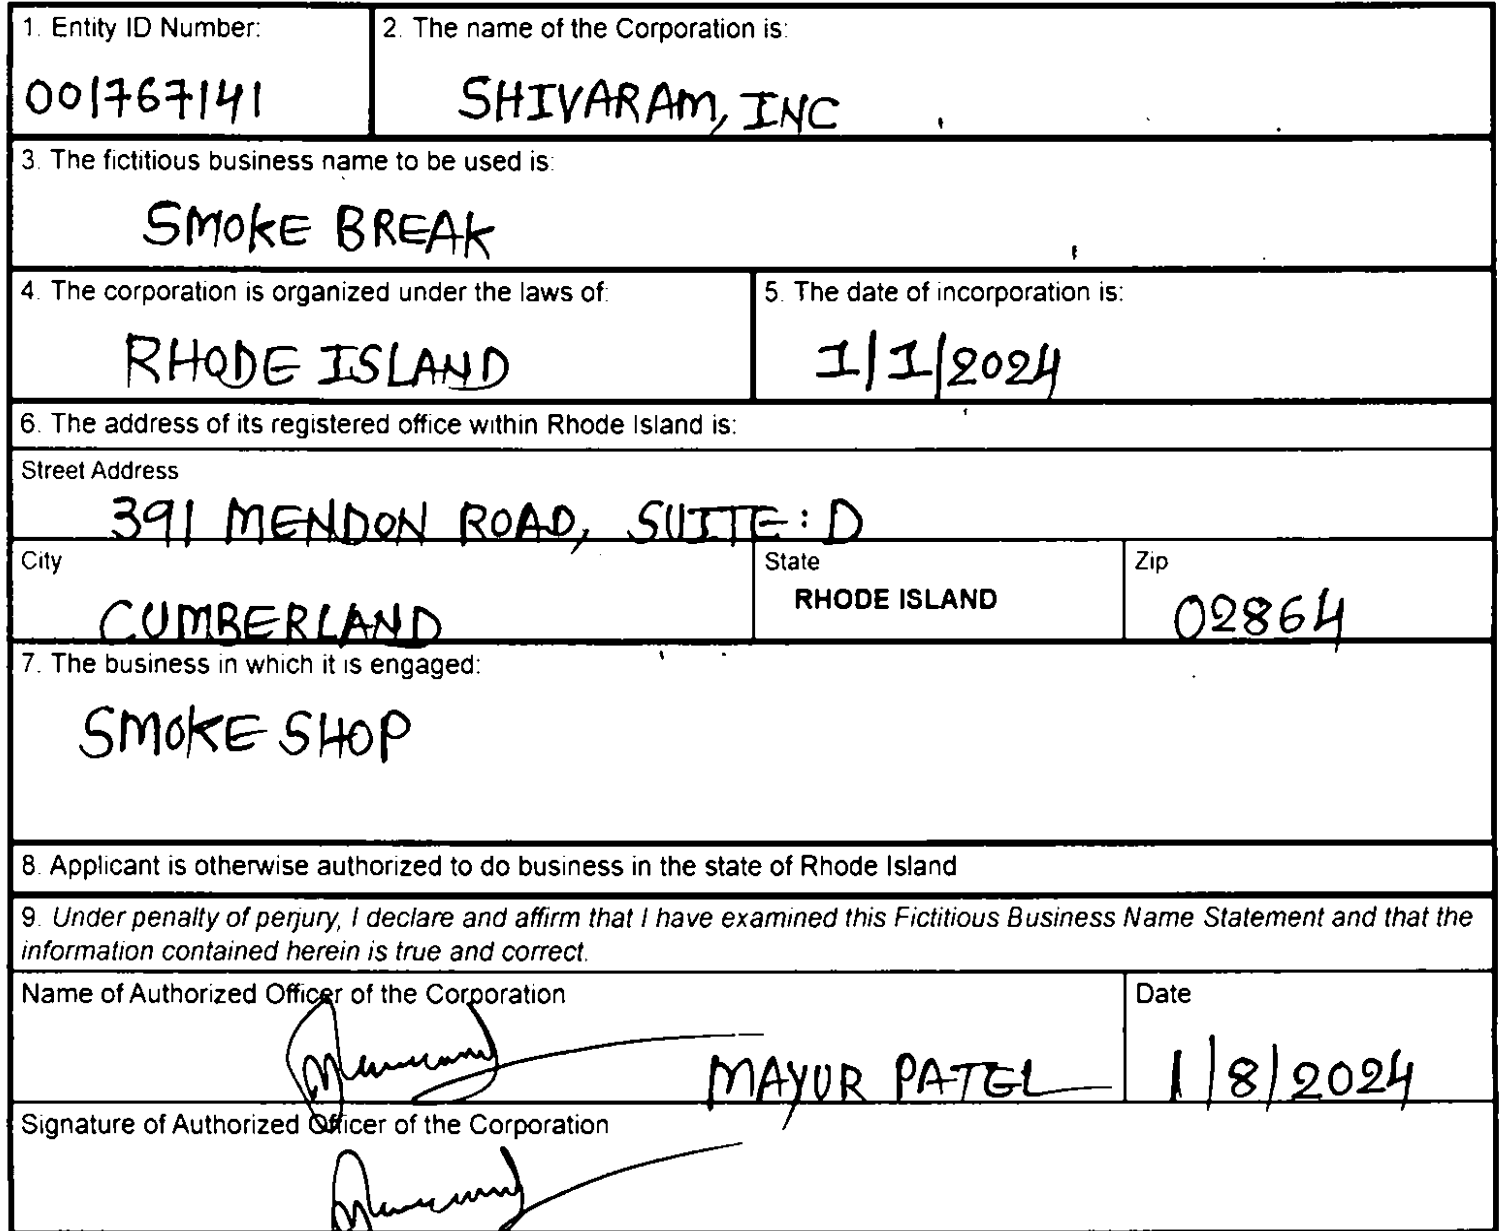 1. Entity ID Number:
001767141
2. The name of the Corporation is:
SHIVARAM, INC
3. The fictitious business name to be used is:
SMOKE BREAK
4. The corporation is organized under the laws of:
RHODE ISLAND
5. The date of incorporation is:
1/1/2024
6. The address of its registered office within Rhode Island is:
Street Address
391 MENDON ROAD, SUITE: D
City
CUMBERLAND
State
RHODE ISLAND
Zip
02864
7. The business in which it is engaged:
SMOKE SHOP
8. Applicant is otherwise authorized to do business in the state of Rhode Island
9. Under penalty of perjury, I declare and affirm that I have examined this Fictitious Business Name Statement and that the
information contained herein is true and correct.
Name of Authorized Officer of the Corporation
MAYUR PATEL
Date
1/8/2024
Signature of Authorized Officer of the Corporation